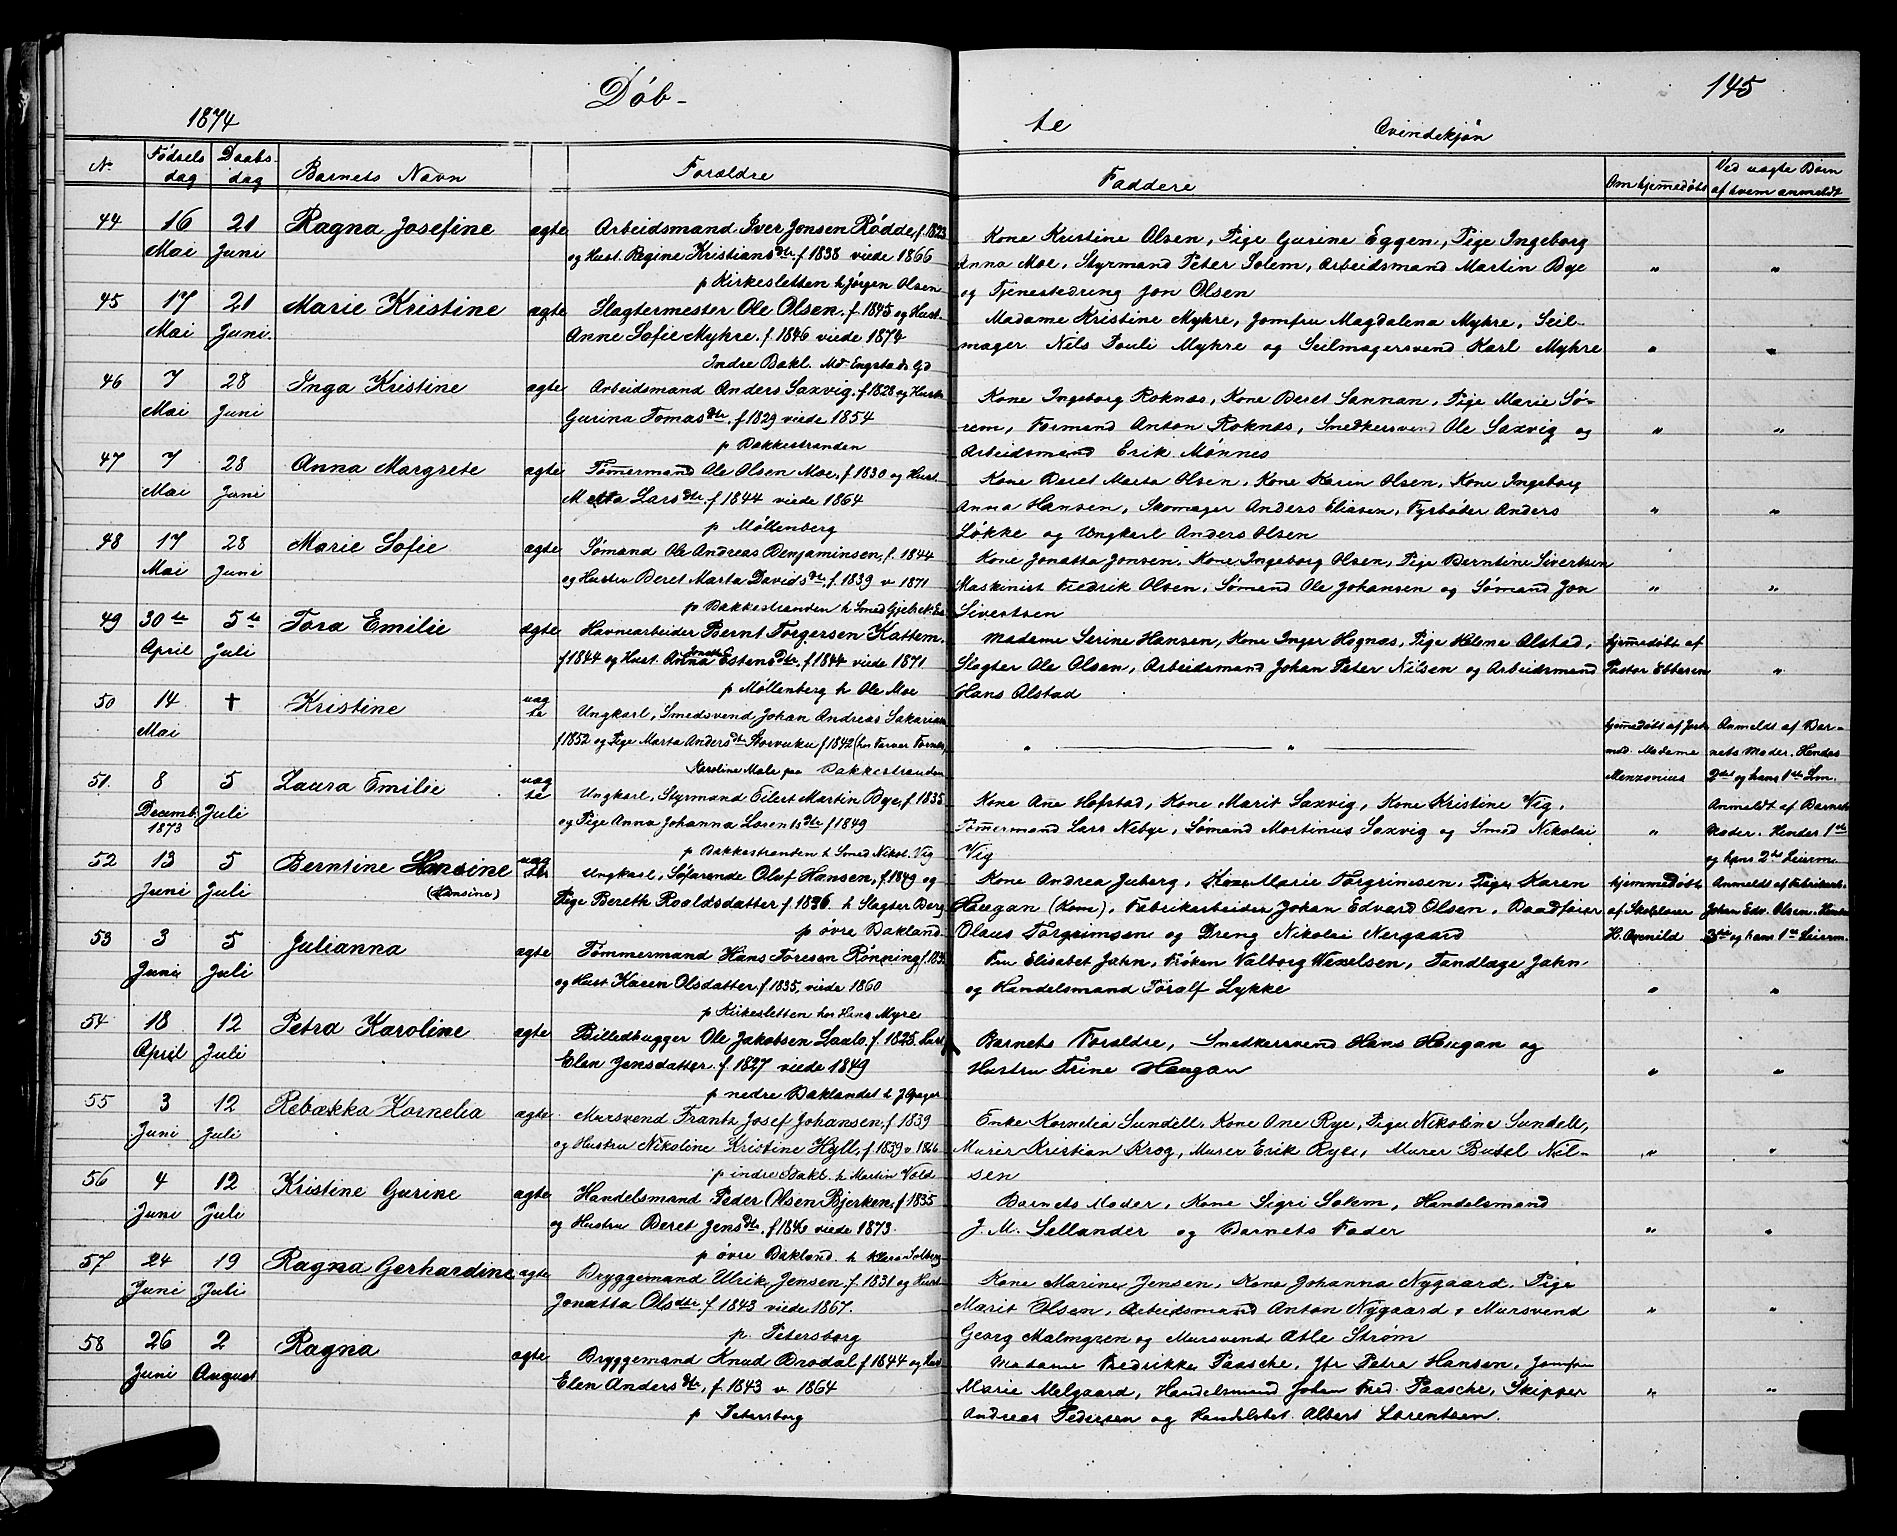 145
Döb- te
1874 Qvindekjön
No Fødsels dag Daabs dag Barnets Navn Forældre Faddere Om hjemmedøbt Ved uægte Börn af hvem anmeldt
44 16 Mai 21 Juni Ragna Josefine ægte Arbeidsmand Iver Jonsen Rödde, f. 1823
og Hust. Regine Kristians dtr. f. 1838 viede 1866
p Kirkesletten h Jörgen Olsen
Kone Kristine Olsen, Pige Gurine Eggen, Pige Ingeborg
Anna Moe, Styrmand Peter Solem, Arbeidsmand Martin Bye " "
og Tjenestedreng Jon Olsen
45 17 Mai 21 Juni. Marie Kristine ægte Slagtermester Ole Olsen, f. 1845 og Hust.
Anne Sofie Myhre, f. 1846 viede 1874
Indre Bakl. Md. Engstads Gd
Madame Kristine Myhre, Jomfru Magdalena Myhre, Seil-
mager Nils Pouli Myhre og Seilmagersvend Karl Myhre " "
46 7 Mai 28 Juni Inga Kristine ægte Arbeidsmand Anders Saxvig, f. 1828 og Hustr.
Gurina Tomas dtr. f. 1829 viede 1854
p Bakkestranden
Kone Ingeborg Roknæs, Kone Beret Sannan, Pige Marie Sö-
rem, Formand Anton Roknæs, Snedkersvend Ole Saxvig og " "
Arbeidsmand Erik Mönnes
47 7 Mai 28 Juni Anna Margrete ægte Tömmermand Ole Olsen Moe, f. 1830 og Hust.
Metta Lars dtr. f. 1844 viede 1864
p Möllenberg
Kone Beret Marta Olsen, Kone Karin Olsen, Kone Ingeborg
Anna Hansen, Skomager Anders Eliasen, Fyrböter Anders " "
Lökke og Ungkarl Anders Olsen
48 17 Mai 28 Juni Marie Sofie ægte Sömand Ole Andreas Benjaminsen, f. 1844
og Hustru Beret Marta Davids dtr, f. 1839 v. 1871
p Bakkestranden h Smed
Kone Jonatta Jonsen, Kone Ingeborg Olsen, Pige Berntine Sivertsen
Maskinist Fredrik Olsen, Sömand Ole Johansen og Sömand Jon " "
Sivertsen
49 30te April 5te Juli Tora Emilie ægte Havnearbeider Bernt Torgersen Kattem.
f 1844 og Hust. Anna Estens dtr. f. 1844 viede 1871
p Möllenberg h Ole Moe
Madame Serine Hansen, Kone Inger Hognæs, Pige Helene Alstad, hjemmedöbt af
Slagter Ole Olsen, Arbeidsmand Johan Peter Nilsen og Arbeidsmand Pastor "
Hans Alstad
50 14 Mai † Kristine uægte Ungkarl, Smedsvend Johan Andreas
f 1852 og Pige Marta Anders dtr. Storvuku f 1842
Karoline paa Bakkestranden
" "
hjemmedöbt af Jord- mod. Madame Menzonius
Anmeldt af Bar- nets Moder. Hendes 2det og hans 1ste
51. 8 Decemb. 1873 5 Juli Laura Emilie uægte Ungkarl, Styrmand Eilert Martin Bye, f. 1835
og Pige Anna Johanna Lorents dtr f 1849
p Bakkestranden h Smed Nikol. Vig
Kone Ane Hofstad, Kone Marit Saxvig, Kone Kristine Vig,
Tömermand Lars Nebye, Sömand Mortinus Saxvig og Smed Nikolai "
Vig
Anmeldt af Barnets Moder. Hendes 1ste og hans 2det Leierm
52 13 Juni 5 Juli Berntine Hansine (Hansine) uægte Ungkarl, Söfarende Oluf Hansen, f. 1849 og
Pige Bereth Roaldsdatter f 1836 h Slagter Berg
p övre Bakland.
Kone Andrea Juberg, Kone Marie Torgrimsen, Pige Karen hjemmedöbt
Haugan (Kone), Fabrikarbeider Johan Edvard Olsen, Baadförer af Skolelærer
Olaus Torgrimsen og Dreng Nikolai Nergaard H.
Anmeldt af Fabrikarb. Johan Edv. Olsen. 3die og hans 1ste Leierm.
53 3 Juni 5 Juli Julianna ægte Tömmermand Hans Toresen Rönning
og Hust Karen Olsdatter, f. 1835, viede 1860
p Kirkesletten hos Hans Myre
Fru Elisabet Jahn, Fröken Valborg Wexelsen, Tandlæge Jahn
og Handelsmand Toralf Lykke " "
54 18 April 12 Juli Petra Karoline ægte Billedhugger Ole Jakobsen Saalo. f. 1825. Hust
Elen Jensdatter. f. 1827 viede 1849
p nedre Baklandet h
Barnets Forældre, Snedkersvend Hans Haugan og
Hustru Trine Haugan " "
55 3 Juni 12 Juli Rebækka Kornelia ægte Mursvend Frants Josef Johansen, f. 1839
og Hustru Nikoline Kristine Hyll, f. 1839 v. 1866
p indre Bakl. h Martin Vold
Enke Kornelia Sundell, Kone Ane Rye, Pige Nikoline Sundell,
Murer Kristian Krog, Murer Erik Rye, Murer Butel Nil- " "
sen
56 4 Juni 12 Juli Kristine Gurine ægte Handelsmand Peder Olsen Bjerken, f. 1835
og Hustru Beret Jens dtr. f. 1846 viede 1873.
p övre Bakland h Solberg
Barnets Moder, Kone Sigri Solem, Handelsmand
J. M. Sellander og Barnets Fader " "
57 24 Juni 19 Juli Ragna Gerhardine ægte Bryggemand Ulrik Jensen, f. 1831 og Hust
Jonatta Ols dtr. f. 1843 viede 1867.
p. Petersborg
Kone Marine Jensen, Kone Johanna Nygaard, Pige
Marit Olsen, Arbeidsmand Anton Nygaard, Mursvend " "
Georg Malmgren og Mursvend Atle Ström
58 26 Juni 2 August Ragna ægte Bryggemand Knud Brodal f 1844 og Hust
Elen Anders dtr. f. 1843 v. 1864
p Petersborg
Madame Fredrikke Paasche, Jfr Petra Hansen, Jomfru
Marie Melgaard, Handelsmand Johan Fred. Paasche, Skipper " "
Andreas Pedersen og Handelsbet. Albert Lorentsen.